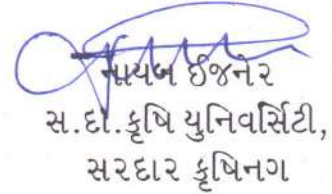 નાયબ ઈજનેર
સ.દાં.કૃષિ યુનિવર્સિટી,
સરદાર કૃષિનગ